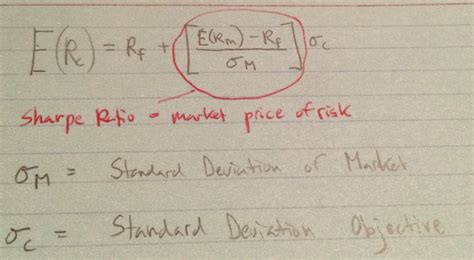 E(R) = Rf + [E(Rm) - Rf / σM] σc
Sharpe Ratio = market price of risk
σM = Standard Deviation of Market
σc = Standard Deviation Objective